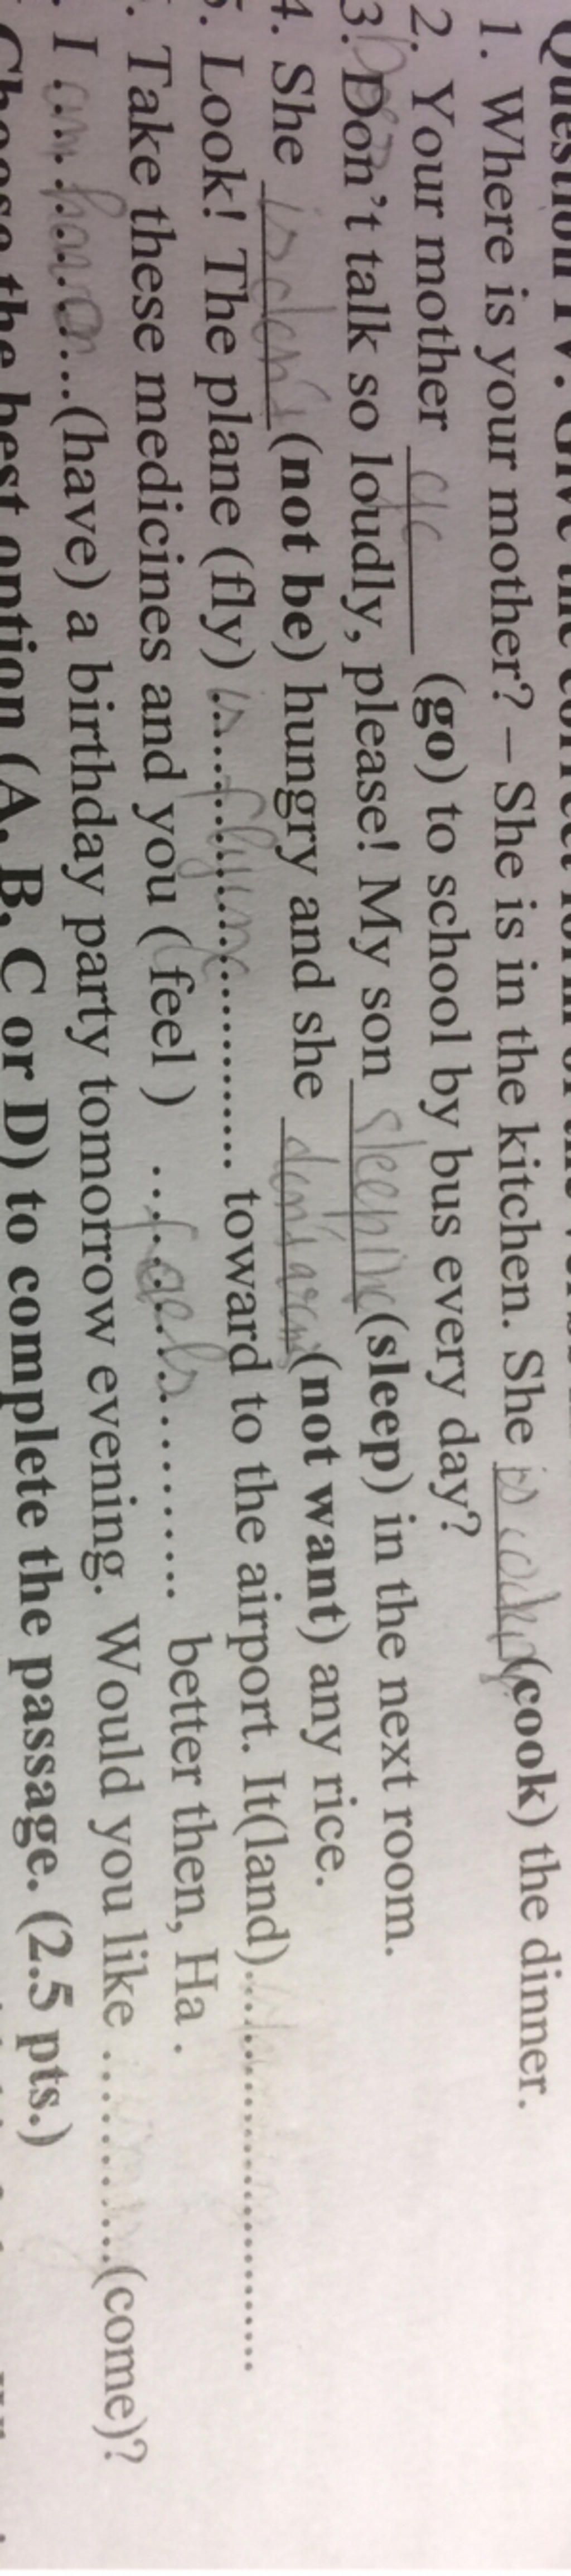 1. Where is your mother? – She is in the kitchen. She is (cook) the dinner.
2. Your mother (go) to school by bus every day?
3. Don't talk so loudly, please! My son sleeping (sleep) in the next room.
4. She (not be) hungry and she (not want) any rice.
. Look! The plane (fly) is flying toward to the airport. It(land)..............................
. Take these medicines and you ( feel ) feels better then, Ha .
. I am (have) a birthday party tomorrow evening. Would you like ............(come)?
Choose the best option (A, B, C or D) to complete the passage. (2.5 pts.)